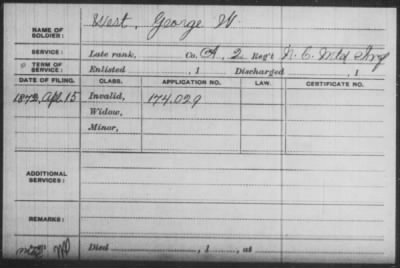 NAME OF SOLDIER: West, George W.
SERVICE: Late rank, Co. A, 2 Reg't N. C. Mtd Inf
TERM OF SERVICE: Enlisted , 1 Discharged , 1
DATE OF FILING. CLASS. APPLICATION NO. LAW. CERTIFICATE NO.
1872, Apl. 15 Invalid, 174.029
Widow,
Minor,
ADDITIONAL SERVICES:
REMARKS:
Died , 1 , at